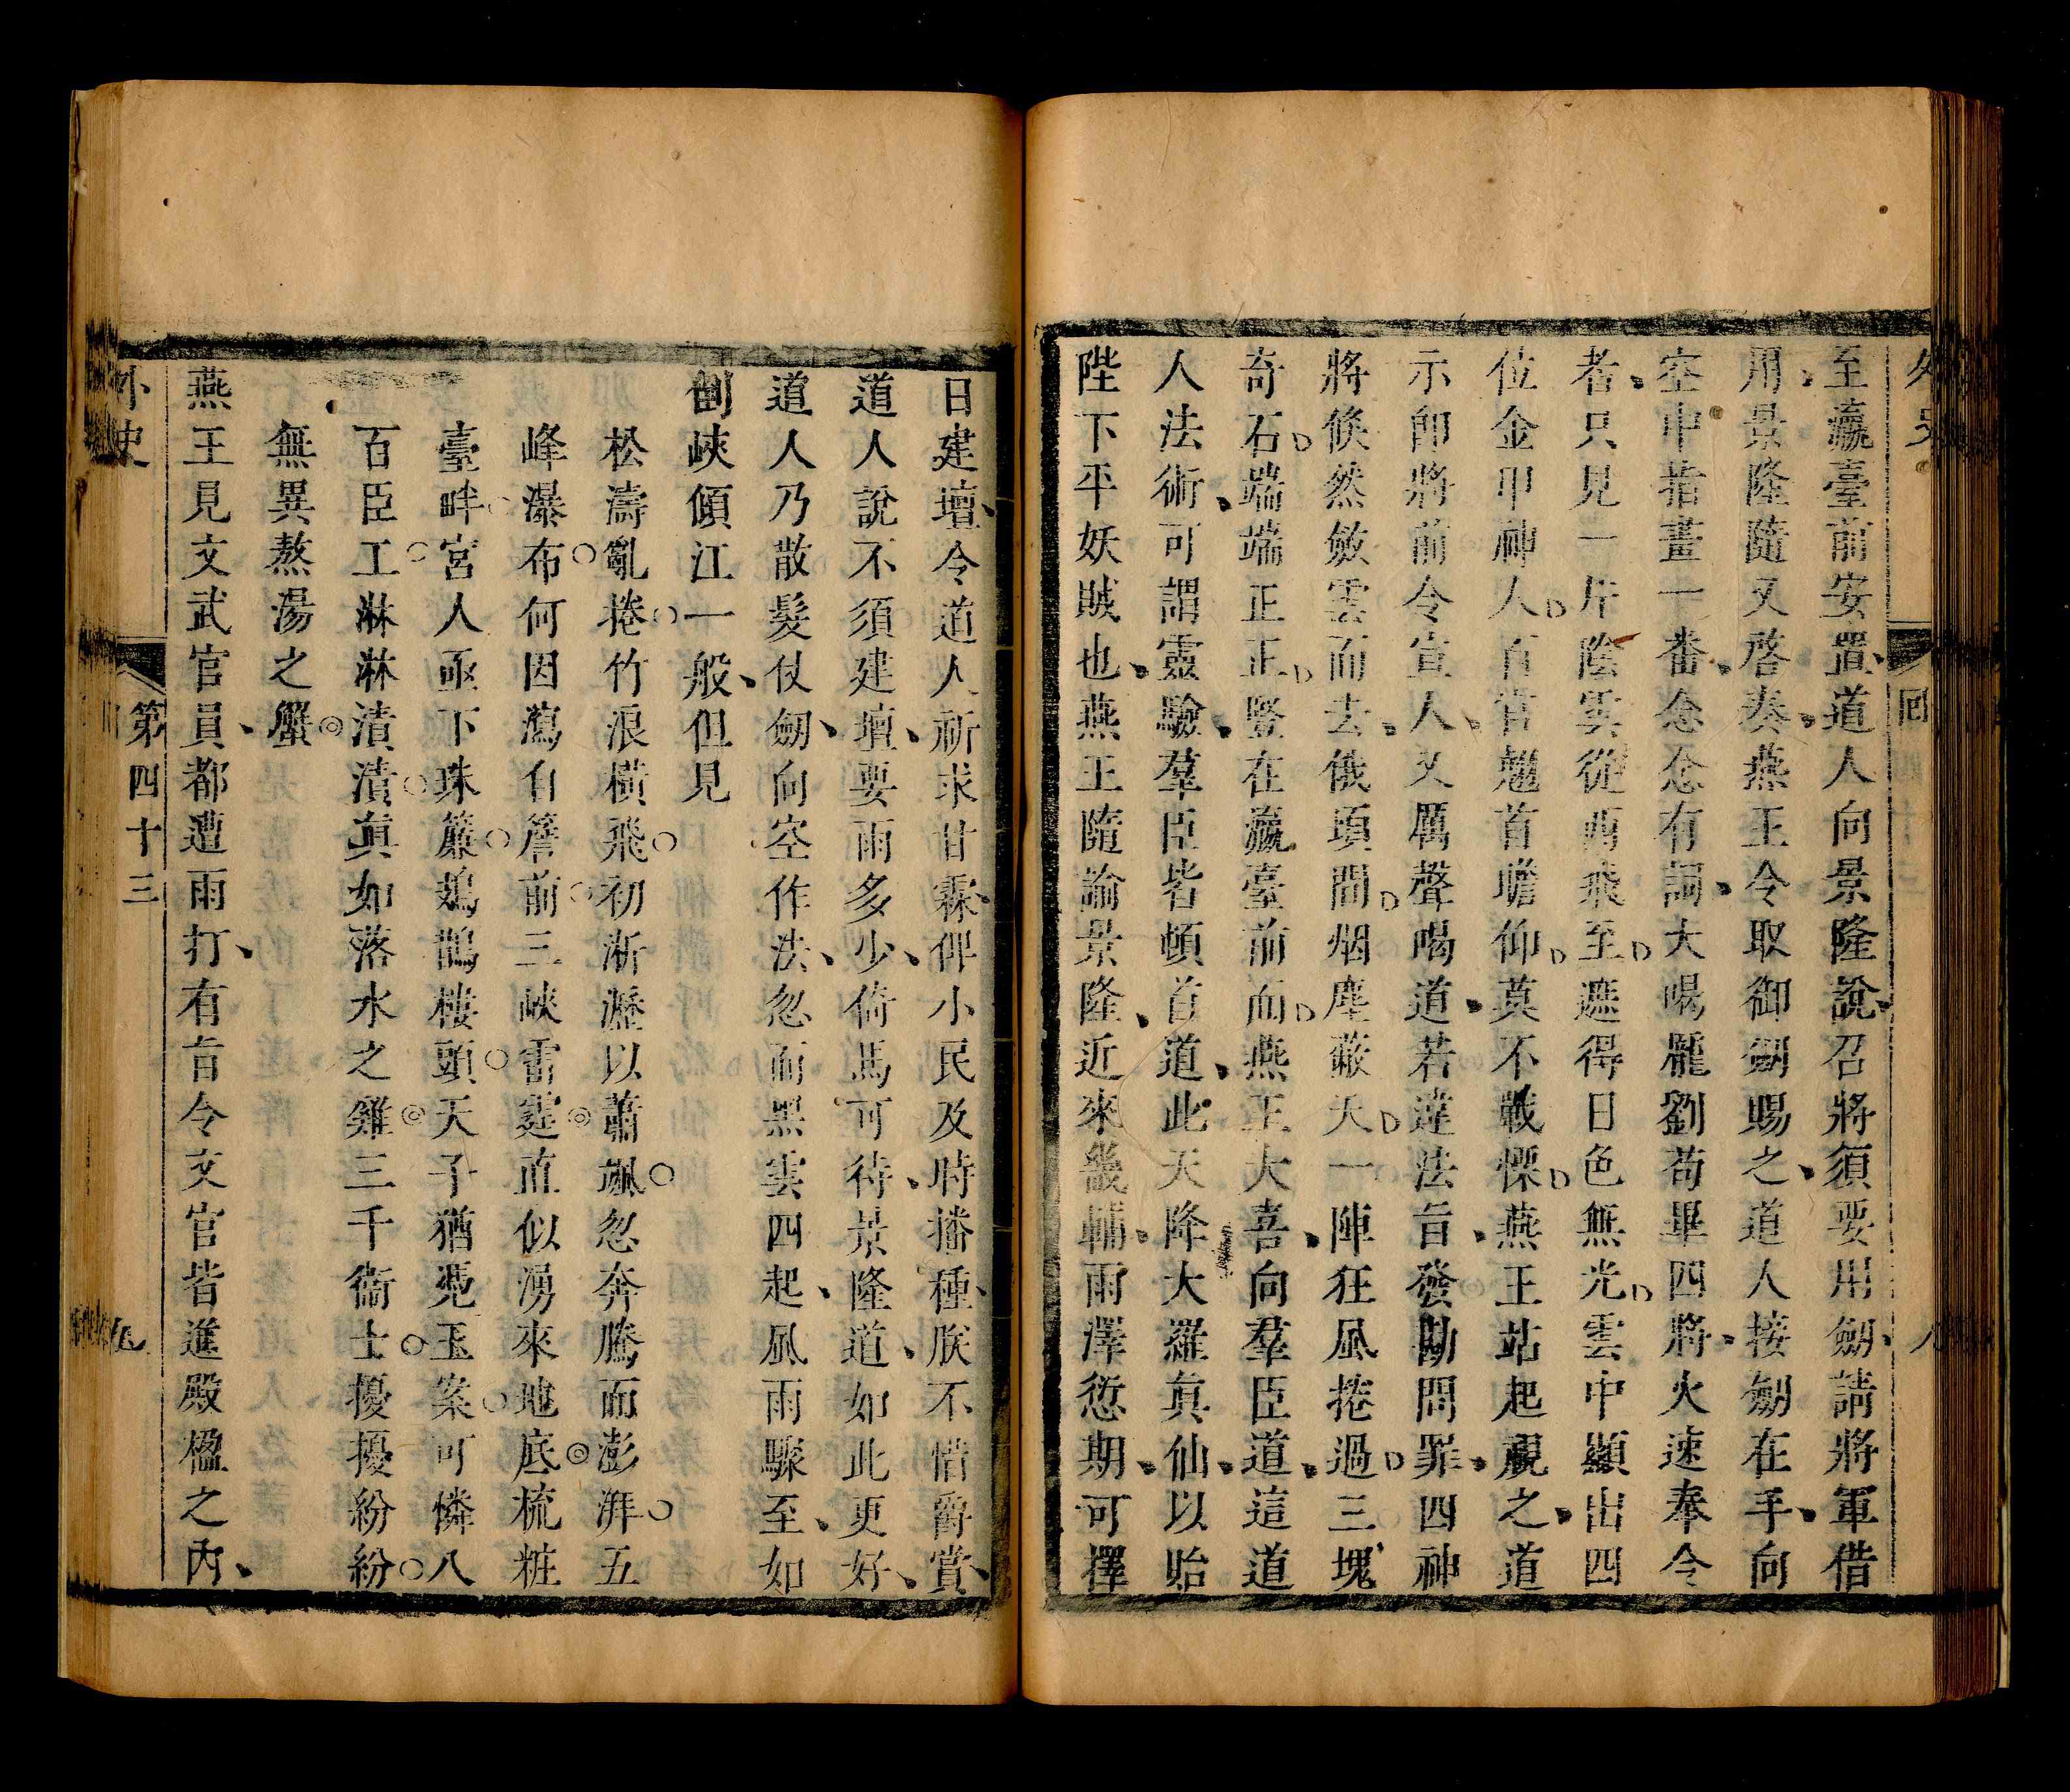 外史
回
八
至瀛臺前安置道人向景隆說召將須要用劒請將軍借
用景隆隨又啓奏燕王令取御劒賜之道人接劒在手向
空中指畫一番念念有詞大喝龐劉苟畢四將火速奉令
者只見一片陰雲從西飛至遮得日色無光雲中顯出四
位金甲神人百官翹首瞻仰莫不戰慄燕王站起覷之道
示卽將前令宣人又厲聲喝道若違法旨發勘問罪四神
將倐然斂雲而去俄頃間烟塵蔽天一陣狂風捲過三塊
奇石端端正正竪在瀛臺前面燕王大喜向羣臣道這道
人法術可謂靈驗羣臣皆頓首道此天降大羅真仙以貽
陛下平妖賊也燕王隨諭景隆近來畿輔雨澤愆期可擇
日建壇令道人祈求甘霖俾小民及時播種朕不惜爵賞
道人說不須建壇要雨多少倚馬可待景隆道如此更好
道人乃散髮仗劒向空作法忽而黑雲四起風雨驟至如
倒峽傾江一般但見
松濤亂捲竹浪橫飛初淅瀝以蕭颯忽奔騰而澎湃五
峰瀑布何因瀉自簷前三峽雷霆直似湧來地底梳粧
臺畔宮人亟下珠簾鳷鵲樓頭天子猶凭玉案可憐八
百臣工淋淋漬漬真如落水之雞三千衞士擾擾紛紛
無異熬湯之蟹
燕王見文武官員都遭雨打有旨令文官皆進殿楹之內
外史
第四十三
九